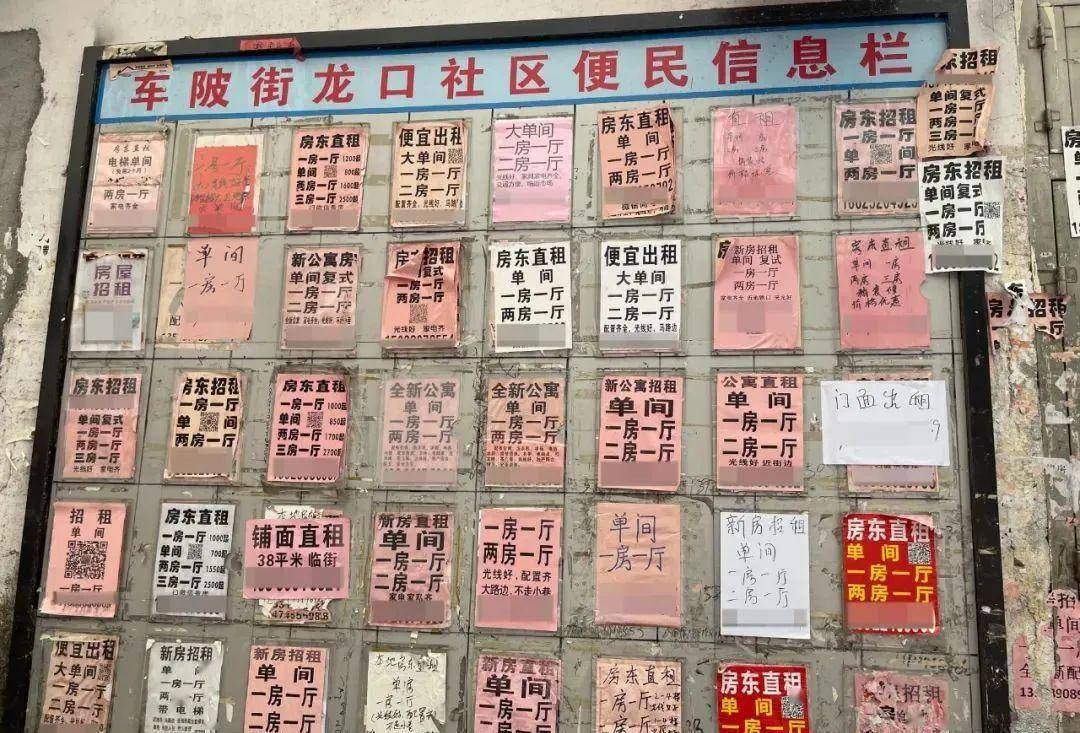 车陂街龙口社区便民信息栏
房东直租
电梯单间
一房一厅
两房一厅
家电齐全
房东直租
一房一厅 1200起
单间 600起
两房一厅 1600起
三房一厅 2500起
便宜出租
大单间
一房一厅
二房一厅
配置齐全、光线好、马路边
大单间
一房一厅
二房一厅
光线好、家具家电齐全、
交通方便、临近市场
房东直租
单间
一房一厅
二房一厅
直租
房东直租
一房一厅
单间
两房一厅
房东招租
单间复式
一房一厅
两房一厅
三房一厅
房东直租
单间复式
一房一厅
两房一厅
光线好
房屋
招租
单间
一房一厅
新公寓房
单间复式
一房一厅
二房一厅
房东招租
单间复式
一房一厅
两房一厅
光线好 家电齐
房东直租
单间
一房一厅
两房一厅
便宜出租
大单间
一房一厅
二房一厅
配置齐全、光线好、马路边
新房招租
单间 复试
一房一厅
两房一厅
房东直租
单间 一房
两房 三房
精装修
价格优惠
房东招租
单间复式
一房一厅
两房一厅
三房一厅
光线好 家电齐
房东招租
一房一厅
单间
两房一厅
房东直租
一房一厅 1000起
单间 850起
两房一厅 1700起
三房一厅 2700起
全新公寓
单间
一房一厅
两房一厅
全新公寓
单间
一房一厅
两房一厅
新公寓招租
单间
一房一厅
二房一厅
公寓直租
单间
一房一厅
二房一厅
光线好 近街边
门面出租
招租
单间
房东直租
一房一厅 1000起
单间 700起
两房一厅 1550起
三房一厅 2500起
铺面直租
38平米 临街
新房直租
单间
一房一厅
二房一厅
一房一厅
两房一厅
光线好,配置齐
大路边,不走小巷
单间
一房一厅
新房招租
单间
一房一厅
二房一厅
房东直租
单间
一房一厅
两房一厅
便宜出租
大单间
一房一厅
二房一厅
新房招租
单间
一房一厅
二房一厅
带电梯
新房招租
单间
一房一厅
二房一厅
本地房东直租
单房
一房一厅
新房直租
单间
一房一厅
二房一厅
房东直租
一房一厅
单间
两房一厅
房东直租
单间
一房一厅
房东招租
单间
一房一厅